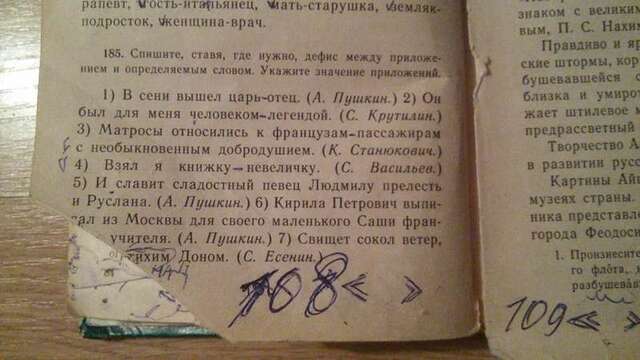 рапевт, гость-итальянец, мать-старушка, земляк-
подросток, женщина-врач.
185. Спишите, ставя, где нужно, дефис между приложе-
нием и определяемым словом. Укажите значение приложений.
1) В сени вышел царь-отец. (А. Пушкин.) 2) Он
был для меня человеком-легендой. (С. Крутилин.)
3) Матросы относились к французам-пассажирам
с необыкновенным добродушием. (К. Станюкович.)
4) Взял я книжку-невеличку. (С. Васильев.)
5) И славит сладостный певец Людмилу прелесть
и Руслана. (А. Пушкин.) 6) Кирила Петрович выпи-
сал из Москвы для своего маленького Саши фран-
учителя. (А. Пушкин.) 7) Свищет сокол ветер,
тихим Доном. (С. Есенин.)
108 « »
знаком с великим
вым, П. С. Нахим
Правдиво и яр
ские штормы, кор
бушевавшейся
близка и умирот
жает штилевое м
предрассветный
Творчество А
в развитии русс
Картины Айв
музеях страны.
ника представл
города Феодоси
1. Произнесите
го флота,
разбушева
109 « »